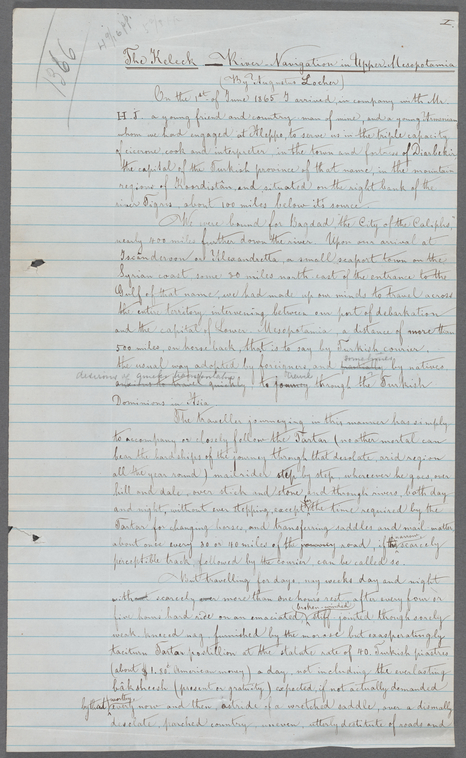 I.
1866
The Keleck — River Navigation in Upper Mesopotamia
(By Augustus Locher)
On the 1st of June 1865 I arrived, in company with Mr.
H. S. a young friend and country-man of mine, and a young Armenian
whom we had engaged at Aleppo, to serve us in the triple capacity
of cicerone, cook and interpreter, in the town and fortress of Diarbekir
the capital of the Turkish province of that name, in the mountain
regions of Koordistan, and situated on the right bank of the
river Tigris, about 100 miles below its source.
We were bound for Bagdad the City of the Caliphs,"
nearly 400 miles further down the river. Upon our arrival at
Iscanderoon or Alexandretta, a small seaport town on the
Syrian coast, some 50 miles north east of the entrance to the
Gulf of that name, we had made up our minds to travel across
the entire territory intervening between our port of debarkation
and the capital of Lower Mesopotamia, a distance of more than
500 miles, on horse back, that is to say by Turkish courier.
the usual way adopted by foreigners, and sometimes by natives
desirous of quick
quickly to travel through the Turkish
Dominions in Asia.
The traveller journeying in this manner has simply
to accompany or closely follow the Tartar (no other mortal can
bear the hardships of the journey through that desolate, arid region
all the year round) mail rider step by step, wherever he goes, over
hill and dale, over stick and stone, and through rivers, both day
and night, without ever stopping, except the time required by the
Tartar for changing horses, and transferring saddles and mail matter
about once every 30 or 40 miles of the road, if the scarcely
perceptible track, followed by the courier, can be called so.
But travelling for days, nay weeks day and night
scarcely more than one hours rest, after every four or
five hours hard ride on an emaciated, broken-winded stiff jointed though sorely
weak kneed nag, furnished by the morose but exasperatingly
taciturn Tartar postillion at the statute rate of 40 Turkish piastres
(about $1.50 American money) a day not including the everlasting
bâksheesh (present or gratuity) expected if not actually demanded
by that worthy every now and then, astride of a wretched saddle, over a dismally
desolate, parched country, uneven, utterly destitute of roads and